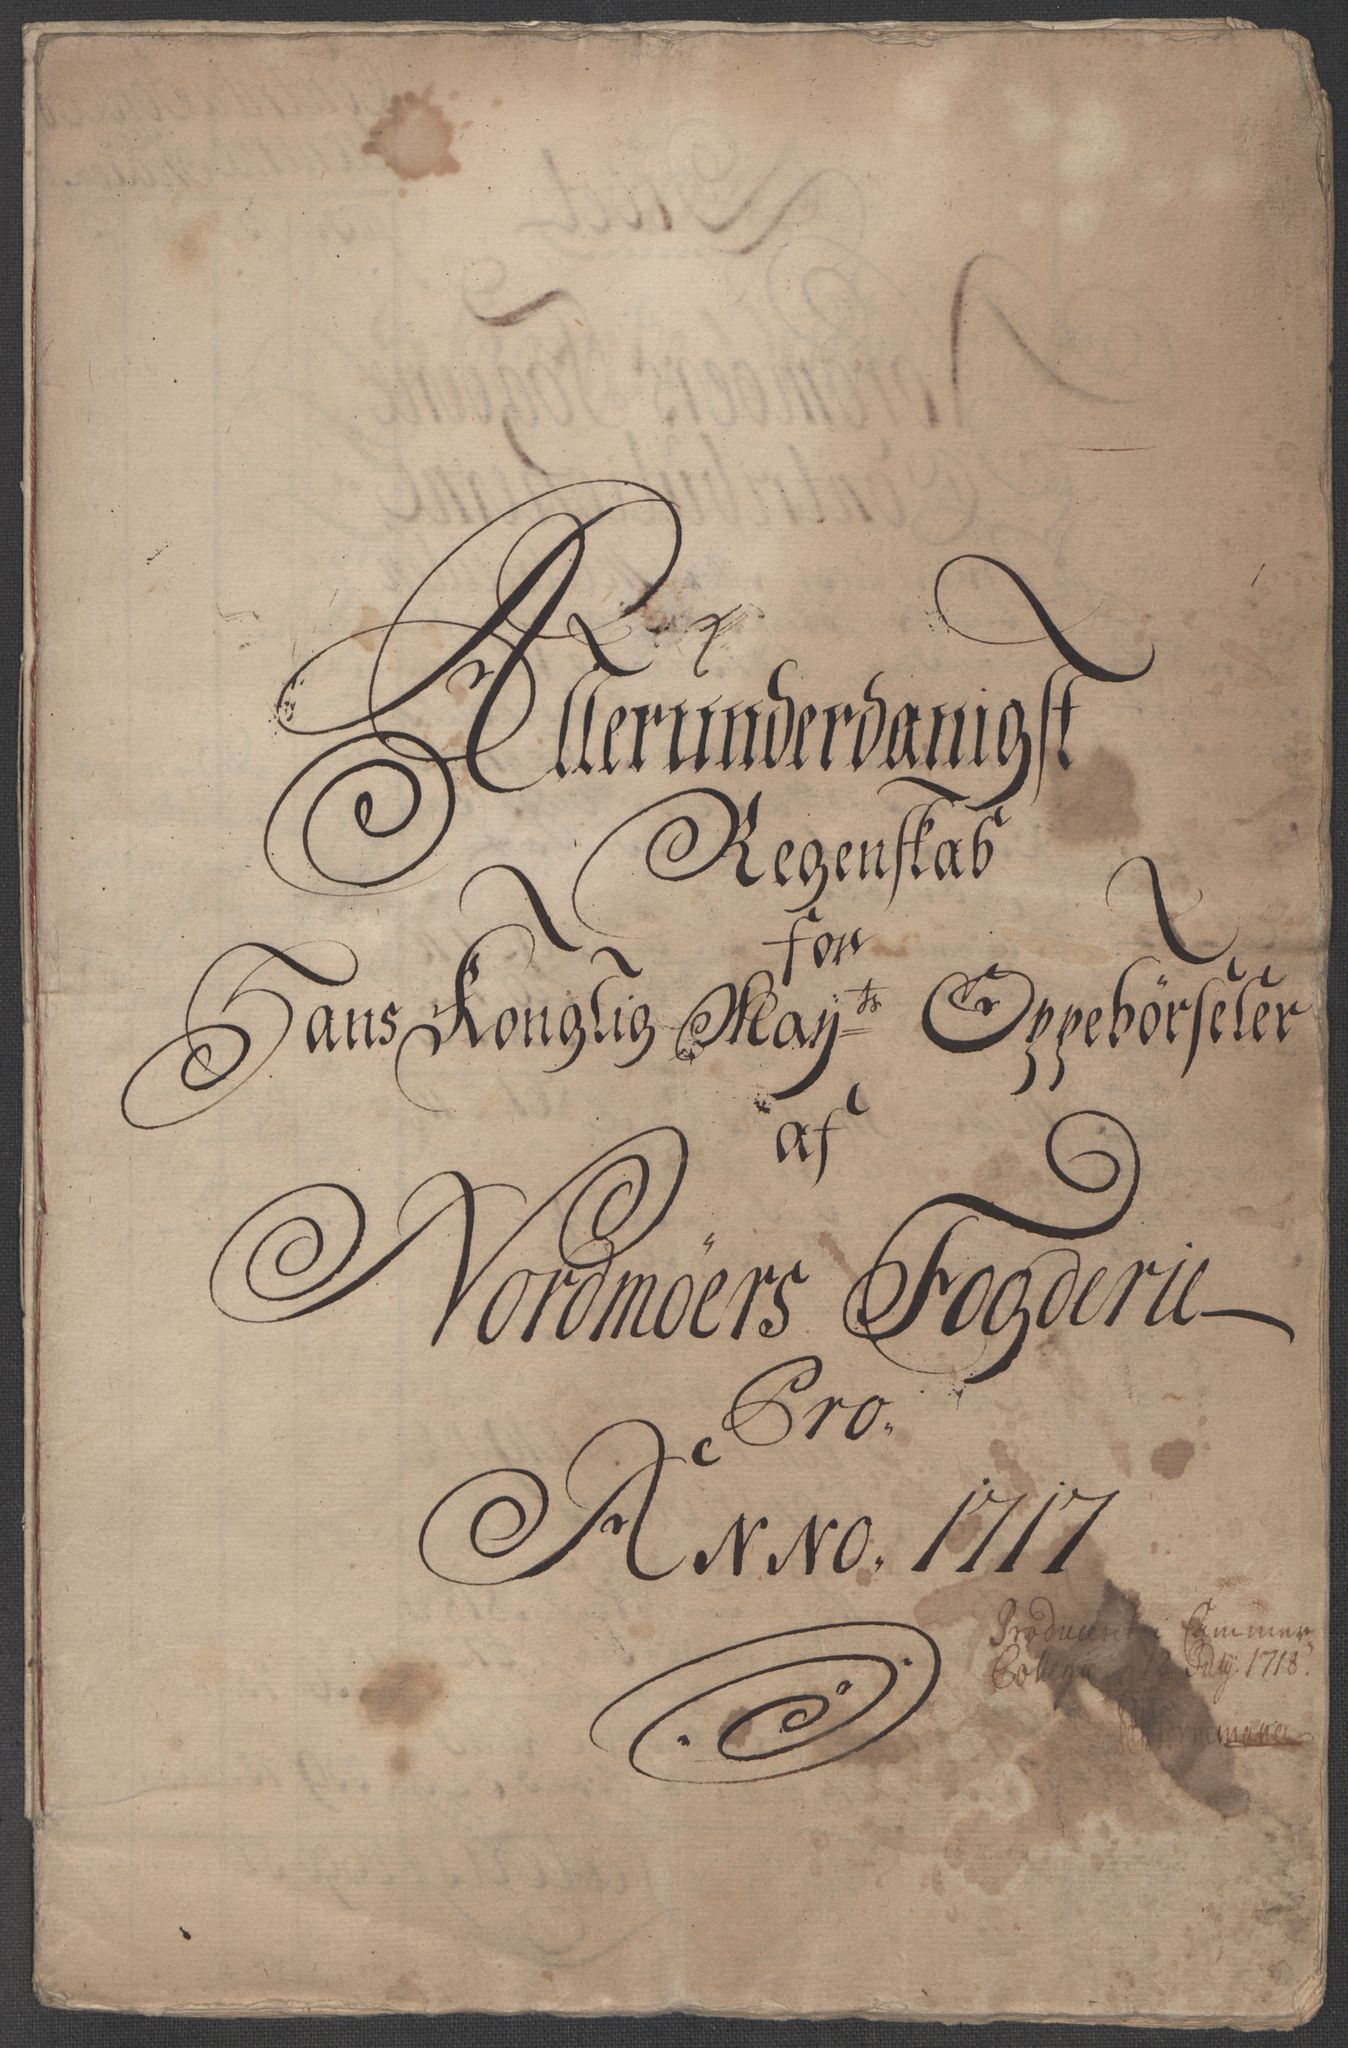 Allerunderdanigst
Regenskab
for
Hans Konglig Mayts Oppebörseler
af
Nordmöers Fogderie
Pro.
Anno. 1717
Producert i Cammer
Collegio 12 July 1718.